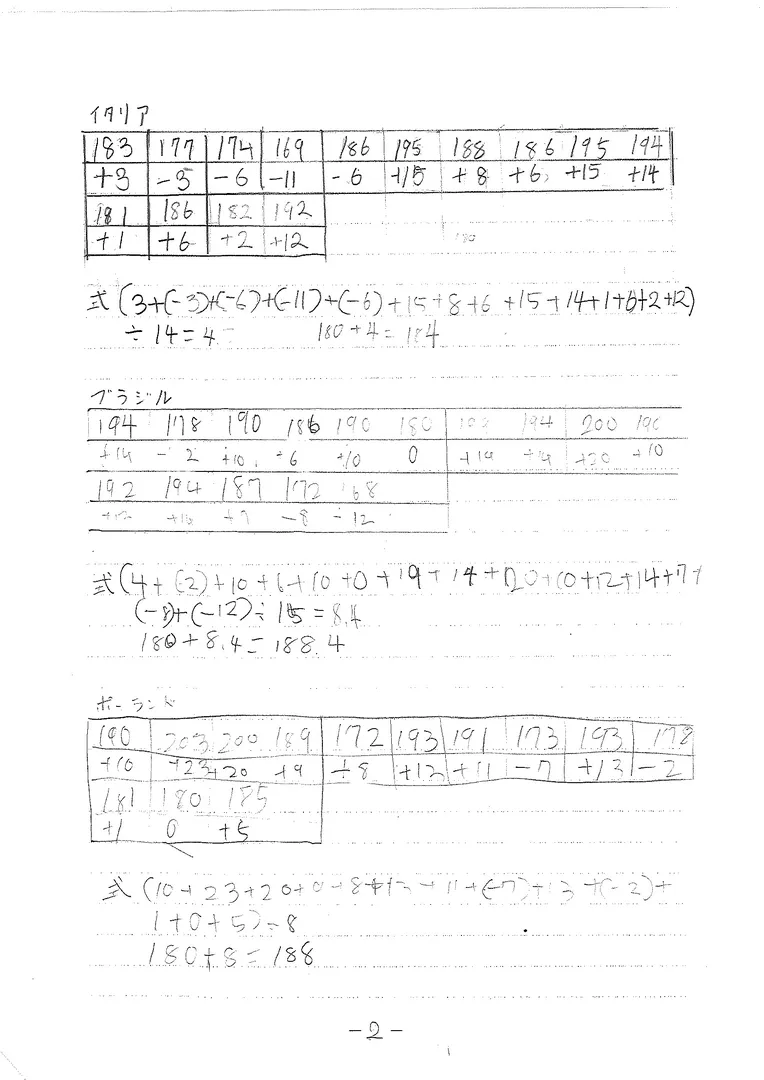 イタリア
183 177 174 169 186 195 188 186 195 194
+3 -3 -6 -11 -6 +15 +8 +6 +15 +14
181 186 182 192
+1 +6 +2 +12
180
式 (3+(-3)+(-6)+(-11)+(-6)+15+8+6+15+14+1+6+2+12)
÷14=4 180+4=184
ブラジル
194 178 190 186 190 180 194 200 190
+14 -2 +10 +6 +10 0 +14 +14 +20 +10
192 194 187 172 168
+12 +14 +7 -8 -12
式(4+(2)+10+6+10+0+19+14+20+10+12+14+7+
(-8)+(-12)÷15=8.4
180+8.4=188.4
ポーランド
190 203 200 189 172 193 191 173 193 178
+10 +23 +20 +9 ÷8 +13 +11 -7 +13 -2
181 180 185
+1 0 +5
式 (10+23+20+ -8+13+11+(-7)+13+(-2)+
1+0+5)=8
180+8=188
-2-